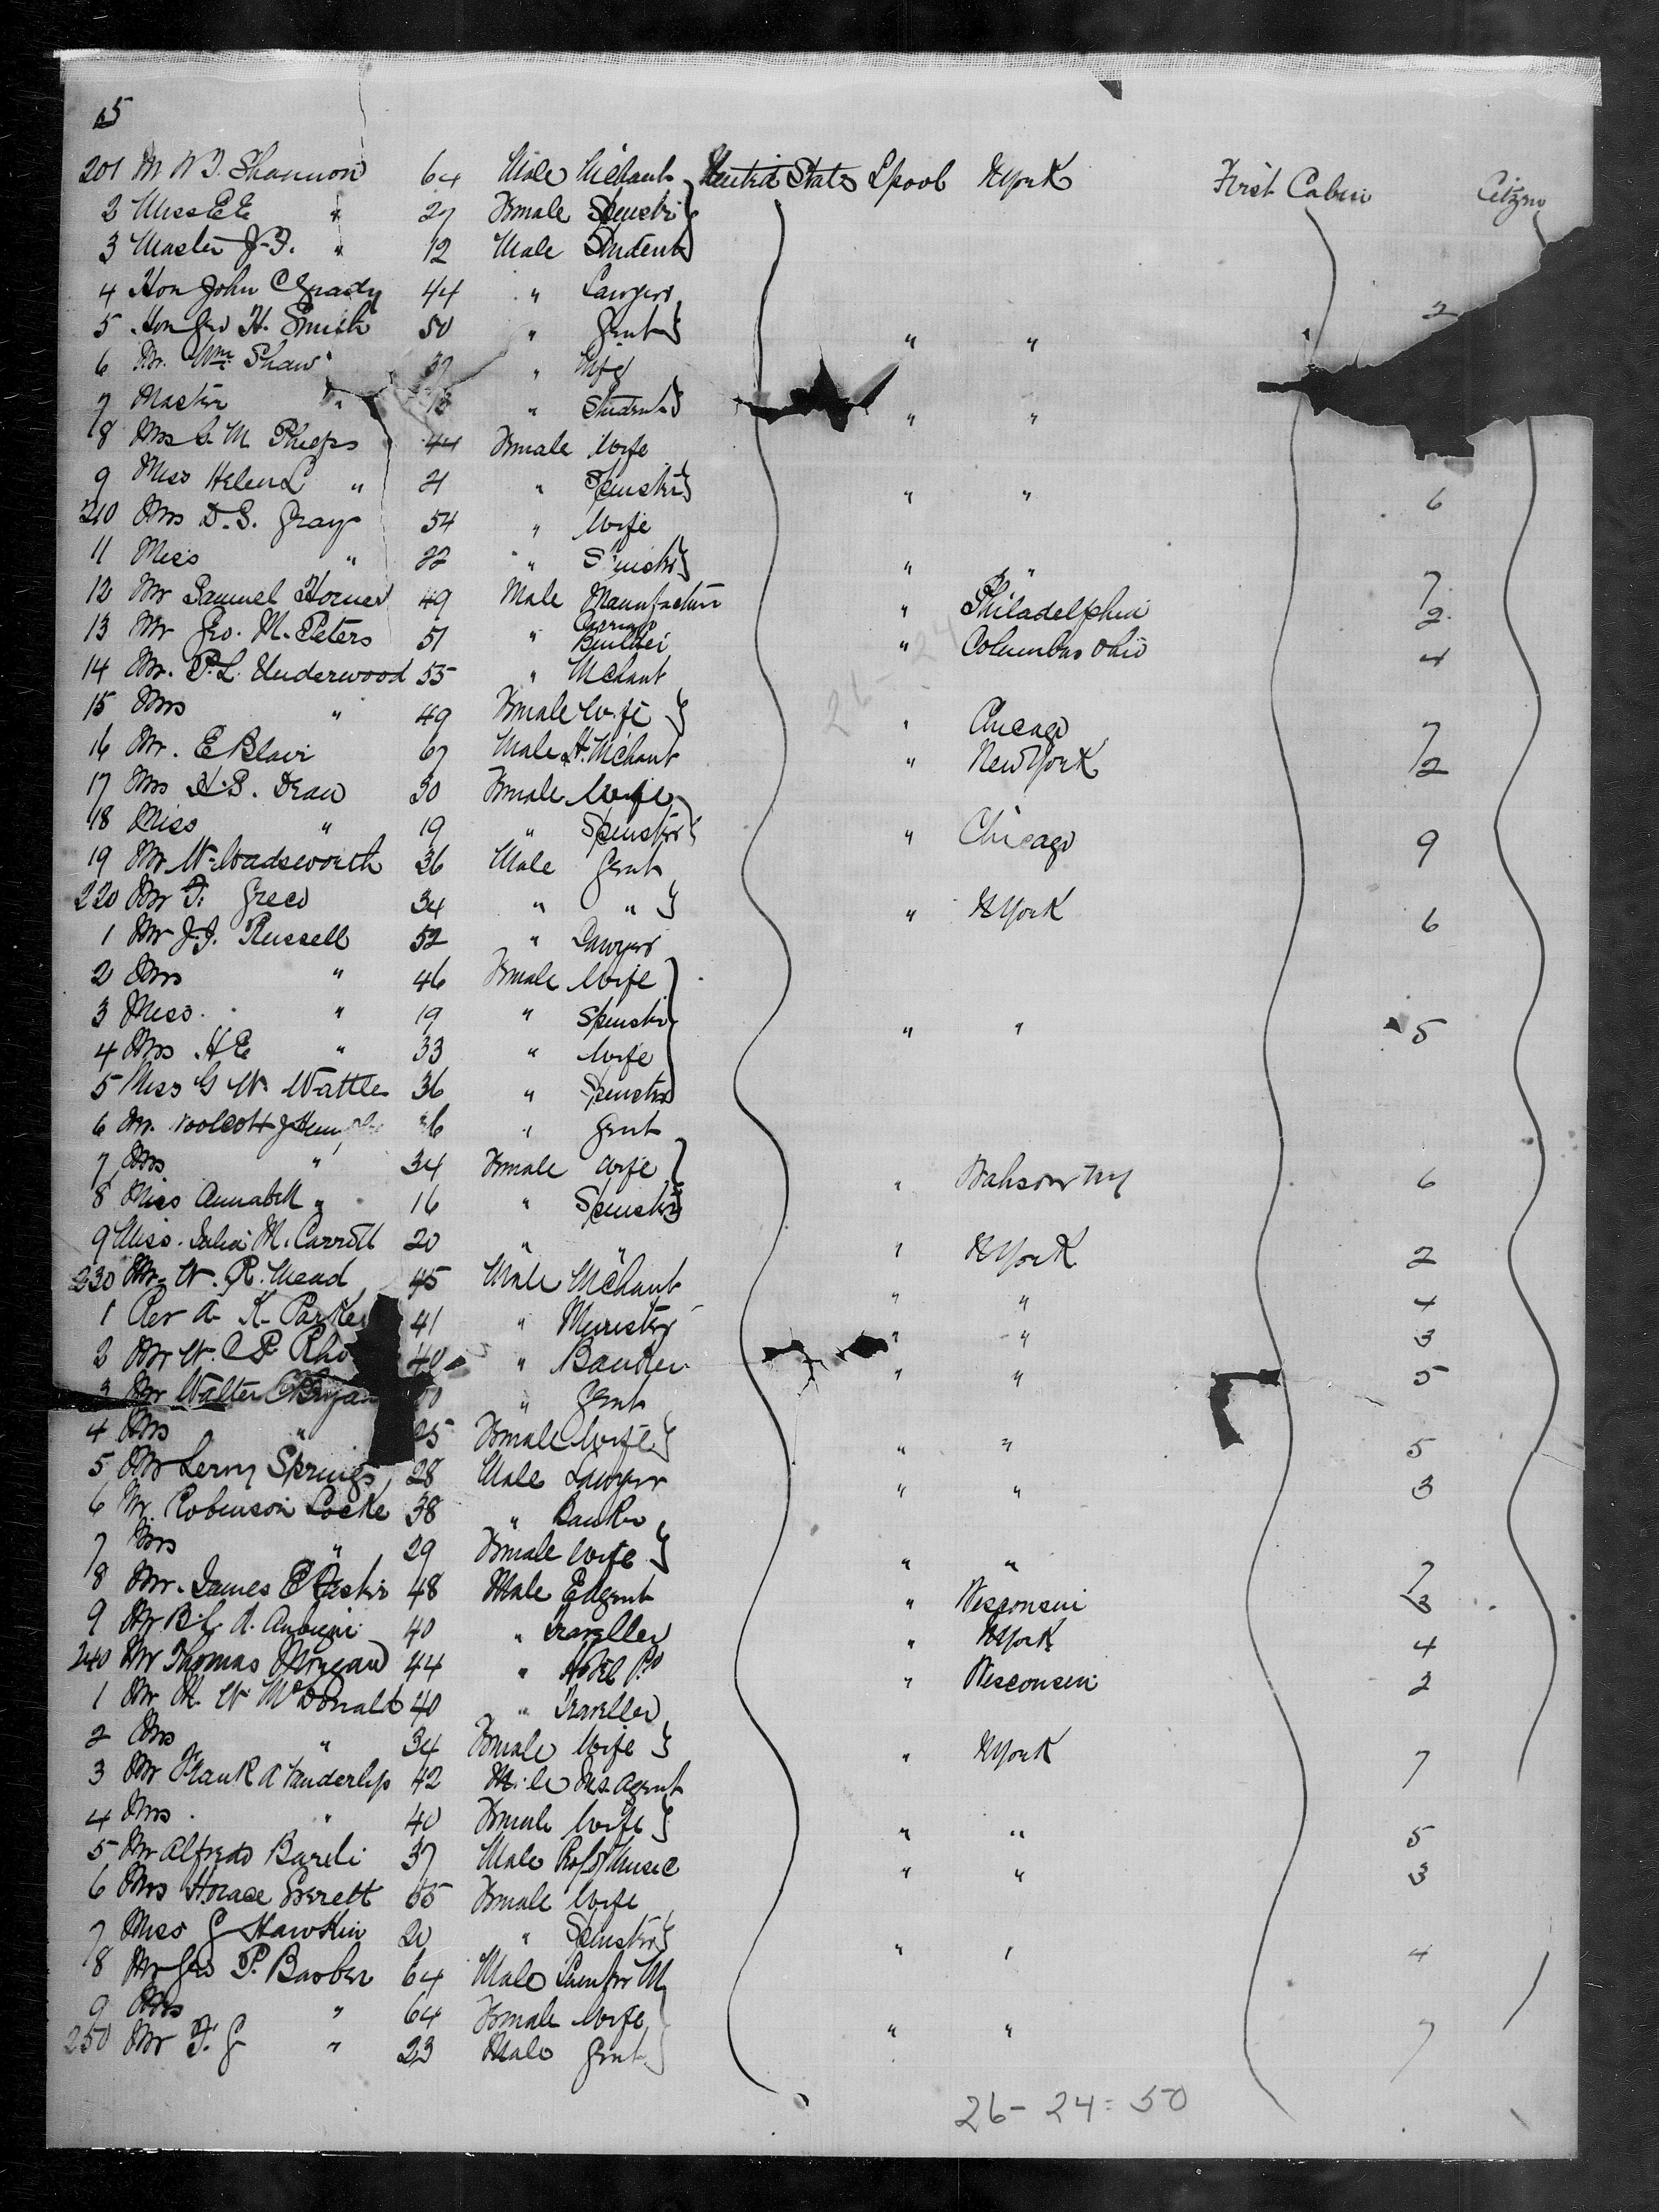 5
201 Mr W J. Shannon 64 Male Mchant United States Lpool NYork First Cabin Citizen
2 Miss E E " 27 Female Spinster
3 Master J. F. " 12 Male Student
4 Hon John C Grady 44 " Lawyer 2
5 Hon Geo H. Smith 50 " Gent " "
6 Mr. Wm Shaw 37 " Mfg
7 Master " 13 " Student " "
8 Mrs S. M. Phelps 44 Female Wife
9 Miss Helen L " 21 " Spinster " " 6
210 Mrs D. S. Gray 54 " Wife
11 Miss " 22 " Spinster " " 7
12 Mr Samuel Horner 49 Male Manufacturer " Philadelphia 2
13 Mr Geo. M. Peters 51 " Carriage Builder " Columbus Ohio 4
14 Mr. P. L. Underwood 55 " Mchant
15 Mrs " 49 Female Wife " Chicago 7
16 Mr. E Blair 67 Male H. Mchant " New York 2
17 Mrs H. B. Dean 30 Female Wife
18 Miss " 19 " Spinster " Chicago 9
19 Mr W. Wadsworth 36 Male Gent
220 Mr F. Greco 34 " " " NYork 6
1 Mr J. J. Russell 52 " Lawyer
2 Mrs " 46 Female Wife
3 Miss " 19 " Spinster " " 5
4 Mrs H E " 33 " Wife
5 Miss G W. Wattles 36 " Spinster
6 Mr. Wolcott J " Gent
7 Mrs " 34 Female Wife " 6
8 Miss Annabell " 16 " Spinster
9 Miss. Julia M. Carroll 20 " " " NYork 2
230 Mr. W. R. Mead 45 Male Mchant " " 4
1 Rev A. K. Parker 41 " Minister " " 3
2 Mr W. C P. Rho 40 " Banker " " 5
3 Mr Walter C Bryan " Gent
4 Mrs " 25 Female Wife " " 5
5 Mr Leroy Springs 28 Male Lawyer " " 3
6 Mr. Robinson Locke 38 " Banker
7 Mrs " 29 Female Wife " " 7
8 Mr. James E 48 Male " Wisconsin 3
9 Mr B. L. 40 " Traveller " NYork 4
240 Mr Thomas Morgan 44 " Hotel Pr " Wisconsin 2
1 Mr M. W. McDonald 40 " Traveller
2 Mrs " 34 Female Wife " NYork 7
3 Mr Frank A Vanderlip 42 Male Ins Agent
4 Mrs. " 40 Female Wife " " 5
5 Mr Alfredo Barili 37 Male Prof of Music " " 3
6 Mrs Horace Everett 55 Female Wife
7 Miss G Hawkin 20 " Spinster " " 4
8 Mr Geo P. Barber 64 Male Lumber M
9 Mrs " 64 Female Wife " " 7
250 Mr F. G " 23 Male Gent
26 - 24 = 50